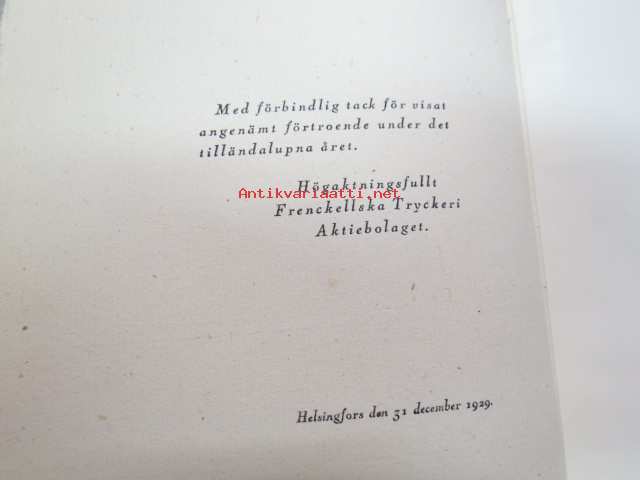 Med förbindlig tack för visat
angenämt förtroende under det
tilländalupna året.
Högaktningsfullt
Antikvariaatti.net
Frenckellska Tryckeri
Aktiebolaget.
Helsingfors den 31 december 1929.